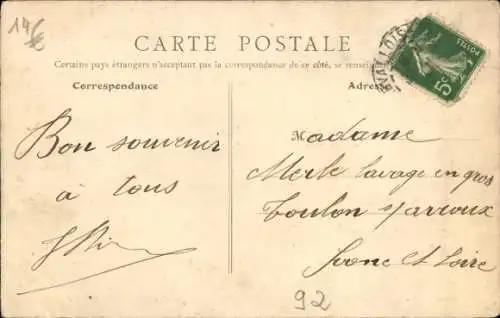 14€
CARTE POSTALE
Certains pays étrangers n'acceptent pas la correspondance de ce côté, se renseis
Correspondance
Adres
POSTES
5c
Bon souvenir
à tous
Madame
Merle lavage en gros
Toulon s/arroux
Saone et Loire
92